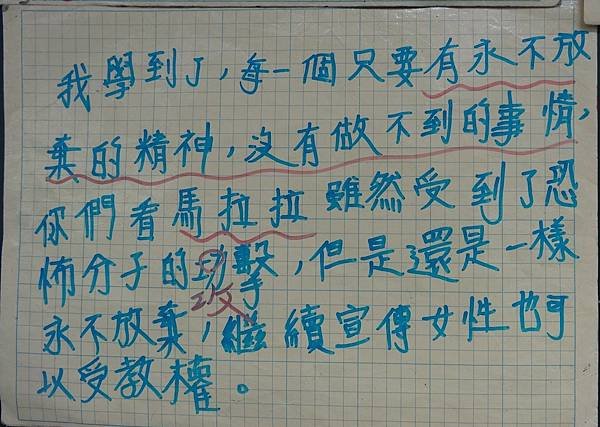 我學到了,每一個只要有永不放
棄的精神,沒有做不到的事情,
你們看馬拉拉雖然受到了恐
怖分子的功擊,但是還是一樣
攻
永不放棄,繼續宣傳女性也可
以受教權。